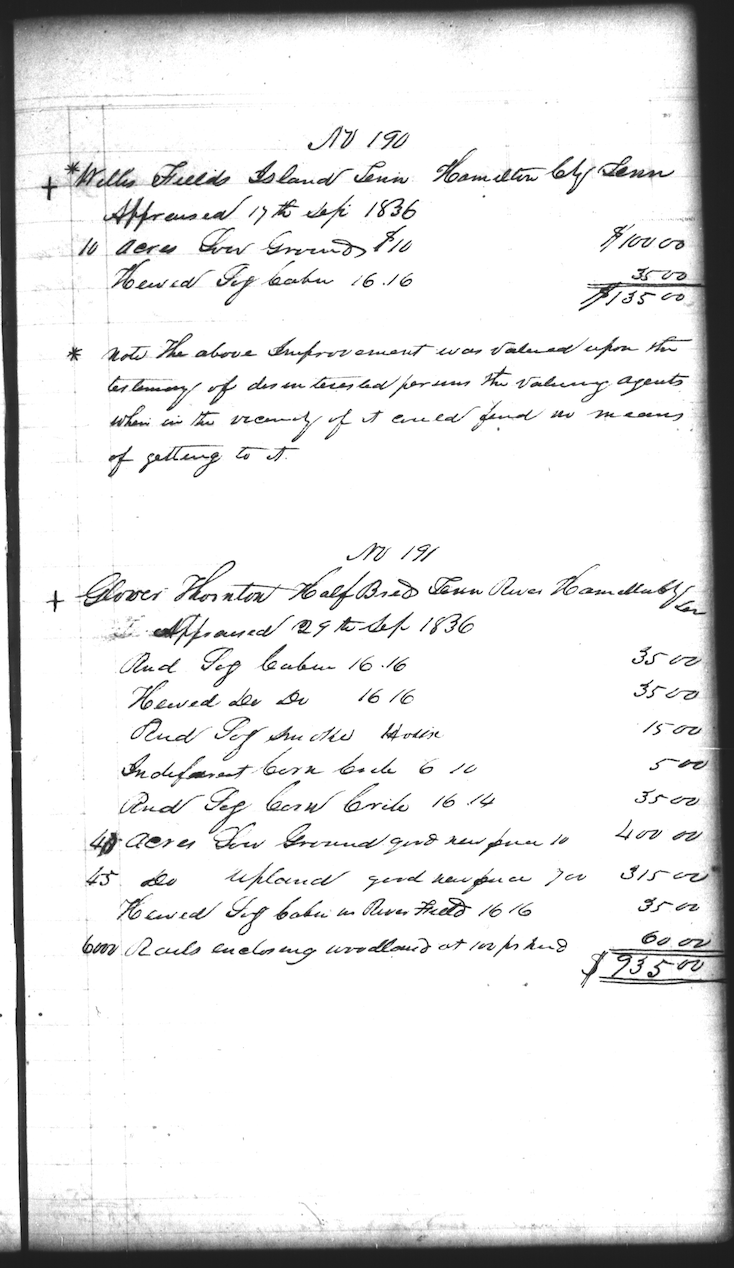 No 190
+ * Willis Fields Island Tenn Hamilton Cty Tenn
Appraised 17th Sep 1836
10 acres Low Ground $10 $100 00
Hewed Log Cabin 16.16 35 00
$135 00
* note The above Improvement was valued upon the
testimony of disinterested persons the valuing agents
when in the vicinity of it could find no means
of getting to it.
No 191
+ Glover Thornton Half Breed Tenn River Hamilton Cty
Ten
Appraised 29th Sep 1836
Rnd Log Cabin 16.16 35 00
Hewed Do Do 16 16 35 00
Rnd Log Smoke House 15 00
Indifferent Corn Crib 6 10 5 00
Rnd Log Corn Crib 16.14 35 00
40 acres Low Ground good new fence 10 400 00
45 Do Upland good new fence 7 00 315 00
Hewed Log Cabin in River Field 16 16 35 00
6000 Rails enclosing woodland at 100 pr Hnd 60 00
$ 935 00